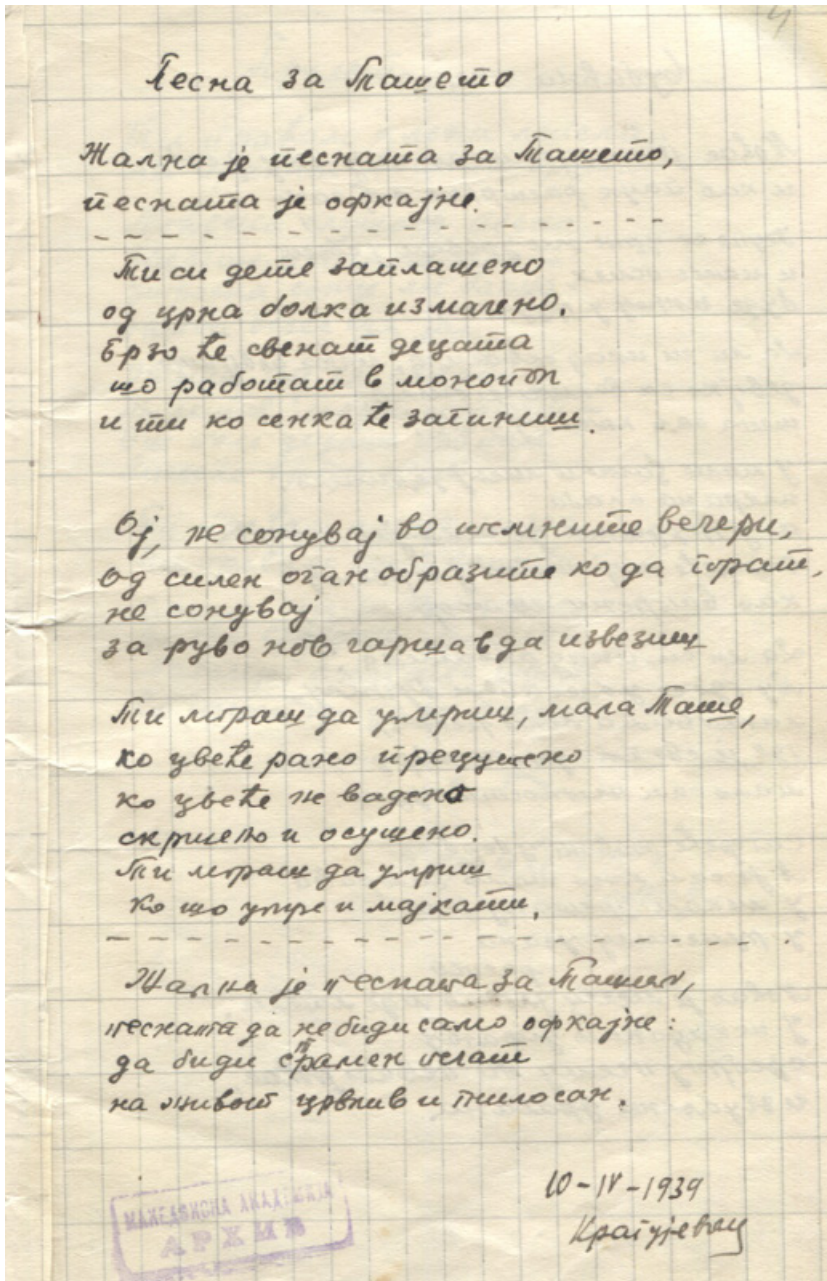 4
Песна за Ташето
Жална је песната за Ташето,
песната је офкајне.
Ти си дете заплашено
од црна болка измачено.
Брзо ће свенат децата
шо работат в монопол
и ти ко сенка ће загиниш.
Ој, не сонувај во темните вечери,
од силен оган образите ко да горат,
не сонувај
за руво нов гаршав да извезиш
Ти мораш да умриш, мала Таше,
ко цвеће рано прецутено
ко цвеће не вадено
скршено и осушено.
Ти мораш да умриш
ко шо умре и мајкати.
Жална је песната за Ташето,
песната да не биди само офкајне:
да биди страмен
на живот црвлив и гнилосан.
10-IV-1939
Крагујевац
МАКЕДОНСКА АКАДЕМИЈА
АРХИВ